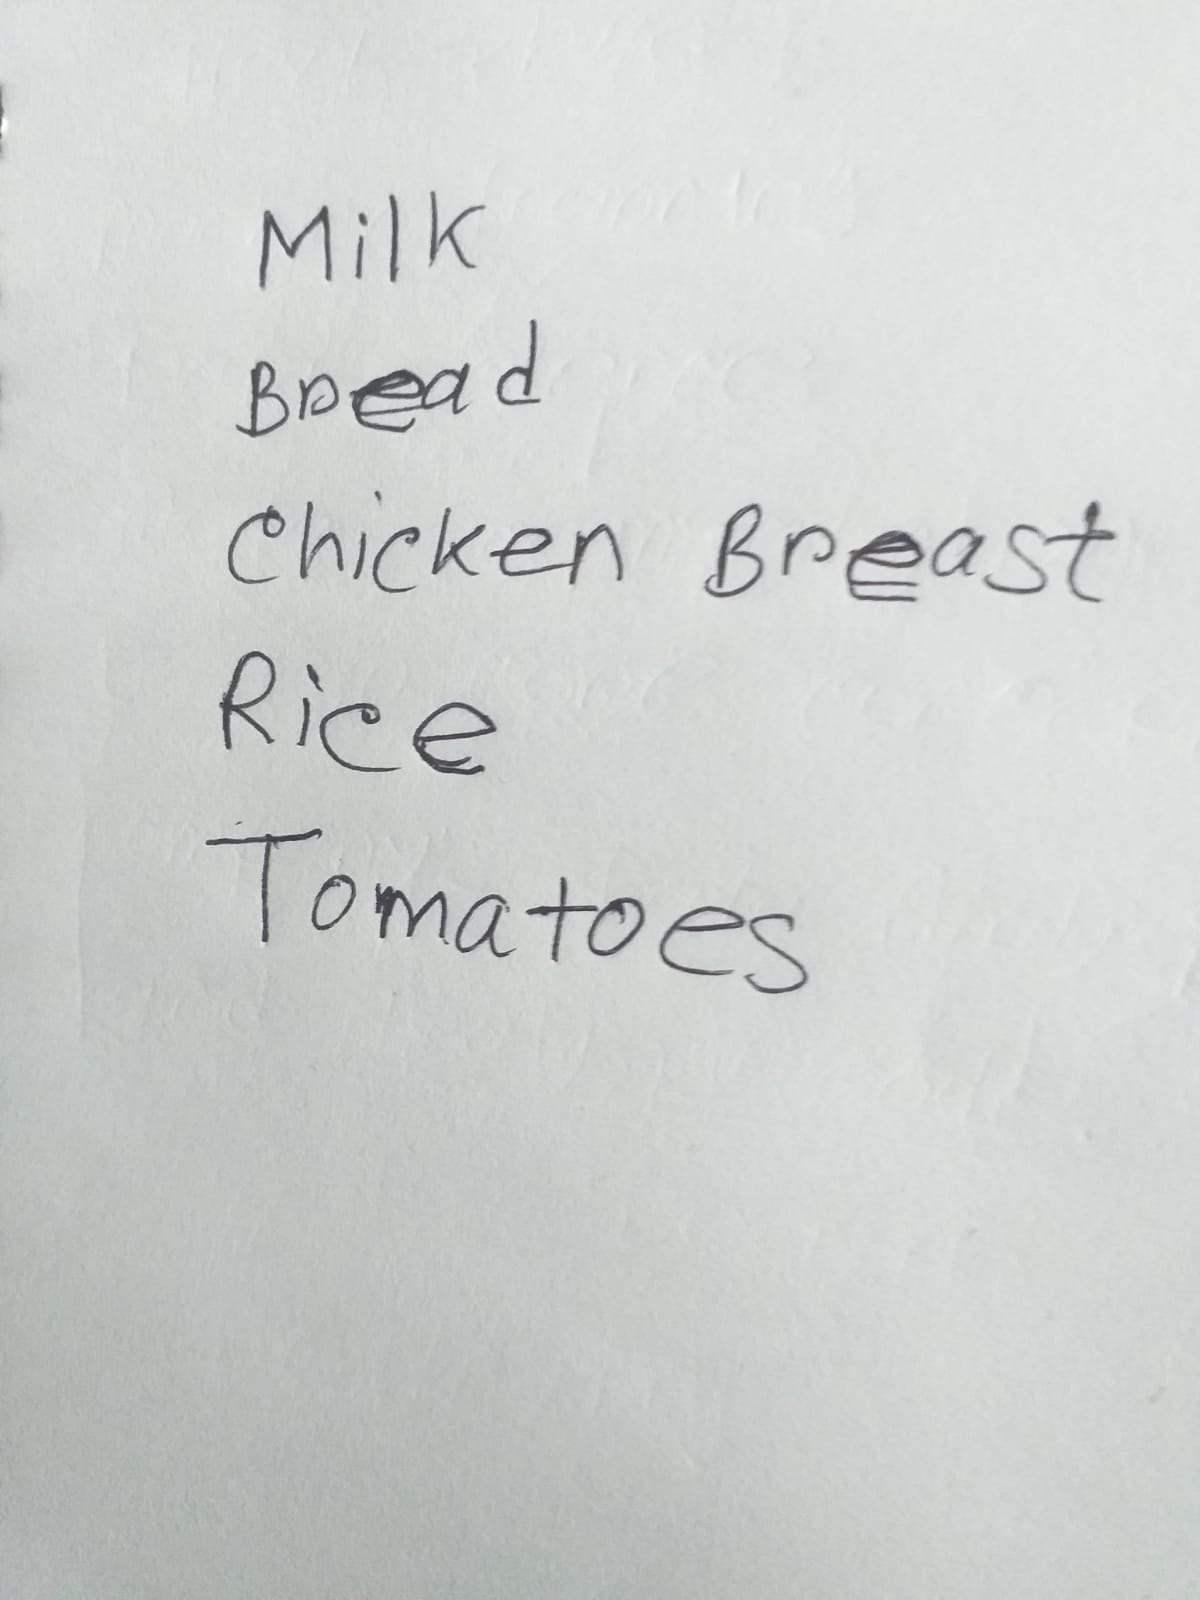 Milk
Bread
Chicken Breast
Rice
Tomatoes